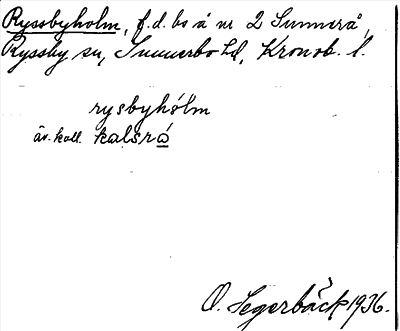 Ryssbyholm, f.d. bs å nr 2 Sunnerå,
Ryssby sn, Sunnerbo hd, Kronob. l.
rysbyhólm
äv. kall. kalsrå
O. Segerbäck 1936.